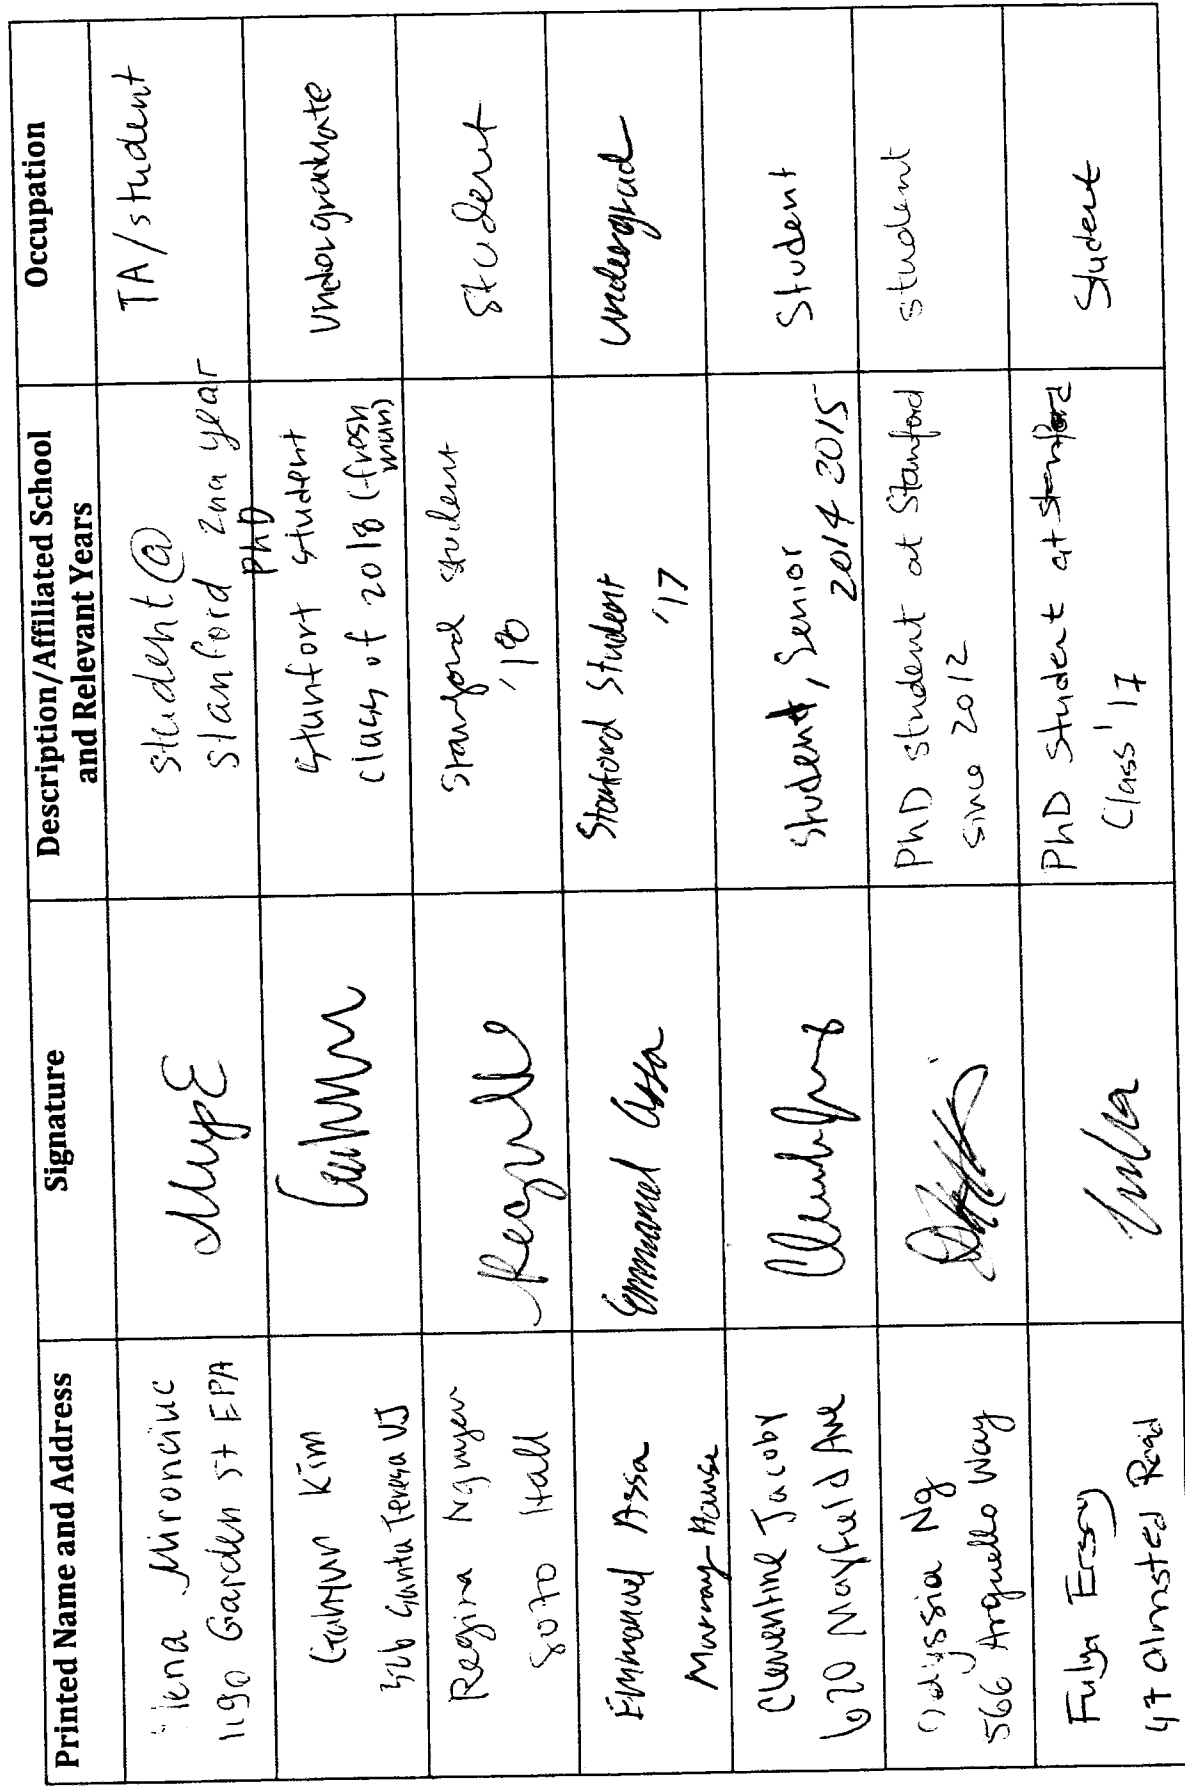 Printed Name and Address
Signature
Description/Affiliated School
and Relevant Years
Occupation
Mironciuc
1190 Garden St EPA
student @
Stanford 2nd year
PhD
TA/student
Kim
326 Santa Teresa
Stanfort student
class of 2018 (fresh
man)
Undergraduate
Regina Nguyen
Hall
Stanford student
'18
Student
Emmanuel Assa
Murray House
Emmanuel Assa
Stanford Student
'17
undergrad
Clementine Jacoby
620 Mayfield Ave
Student, Senior
2014 2015
Student
Odyssia Ng
566 Arguello Way
PhD student at Stanford
since 2012
student
Fulya Ersoy
47 Olmsted Road
PhD Student at Stanford
Class '17
Student